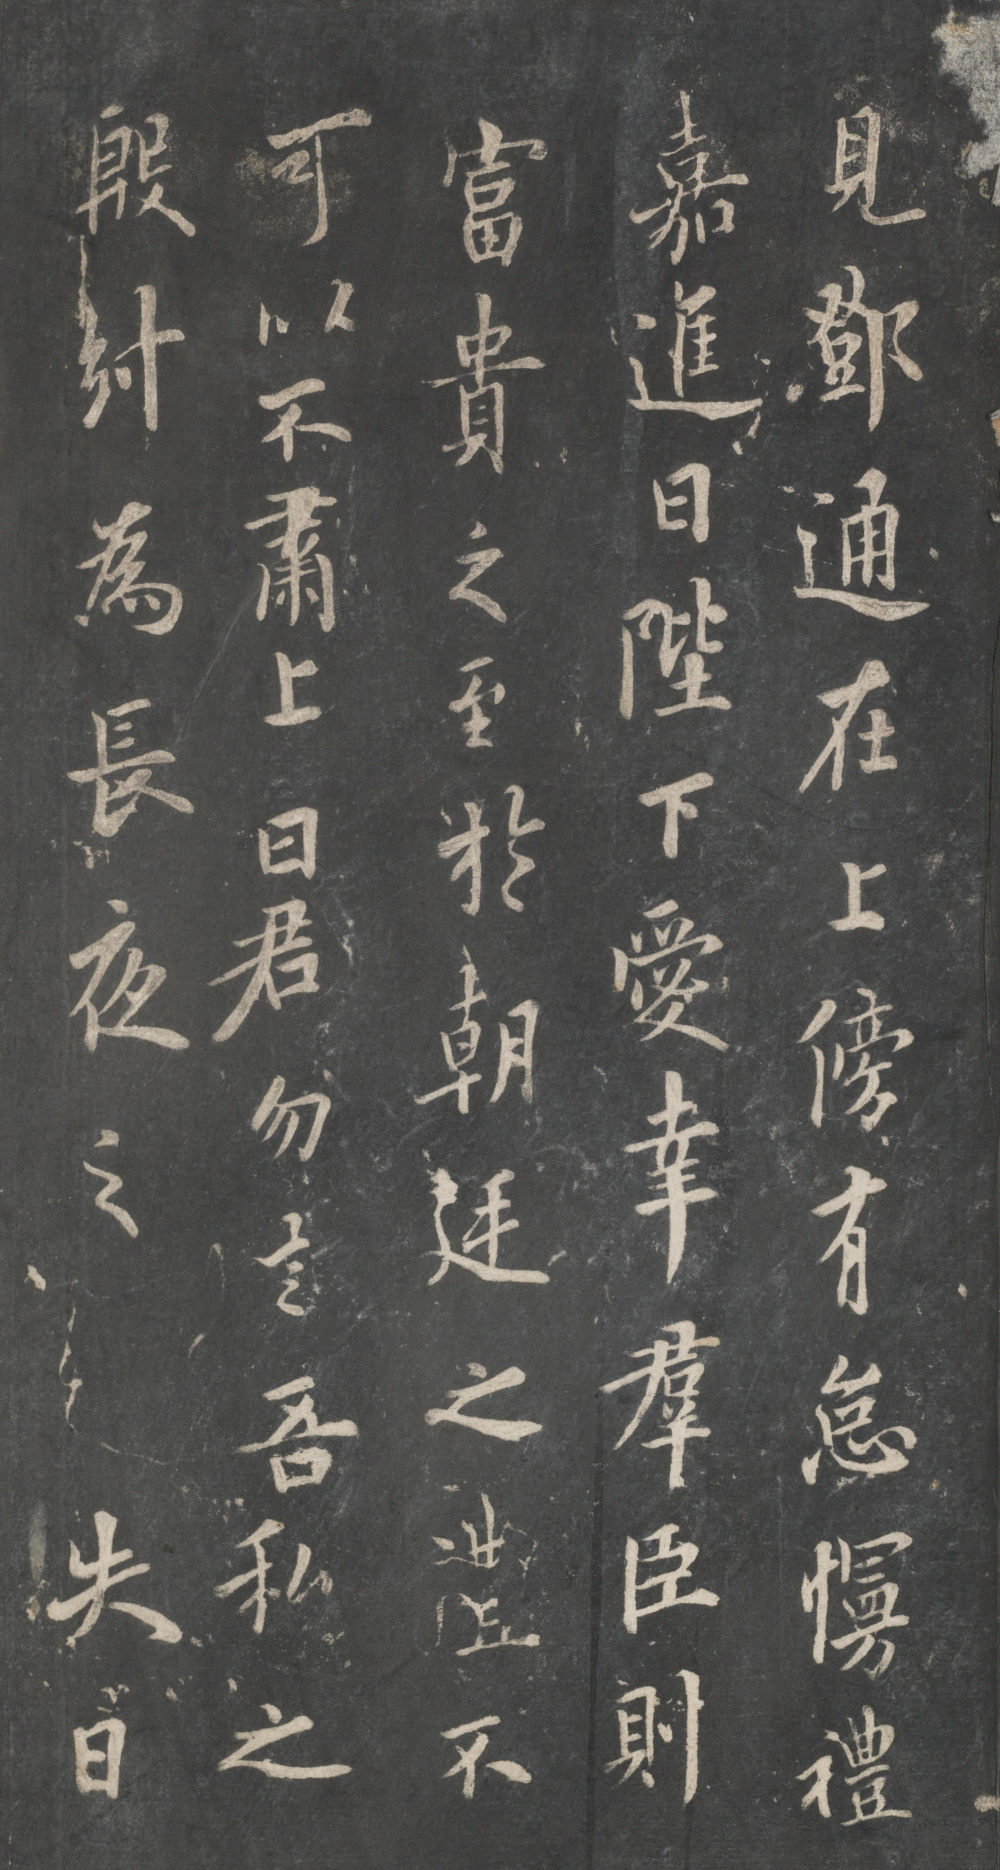 見鄧通在上傍有怠慢禮
嘉進曰陛下愛幸羣臣則
富貴之至於朝廷之禮不
可以不肅上曰君勿言吾私之
殷紂為長夜之 失日